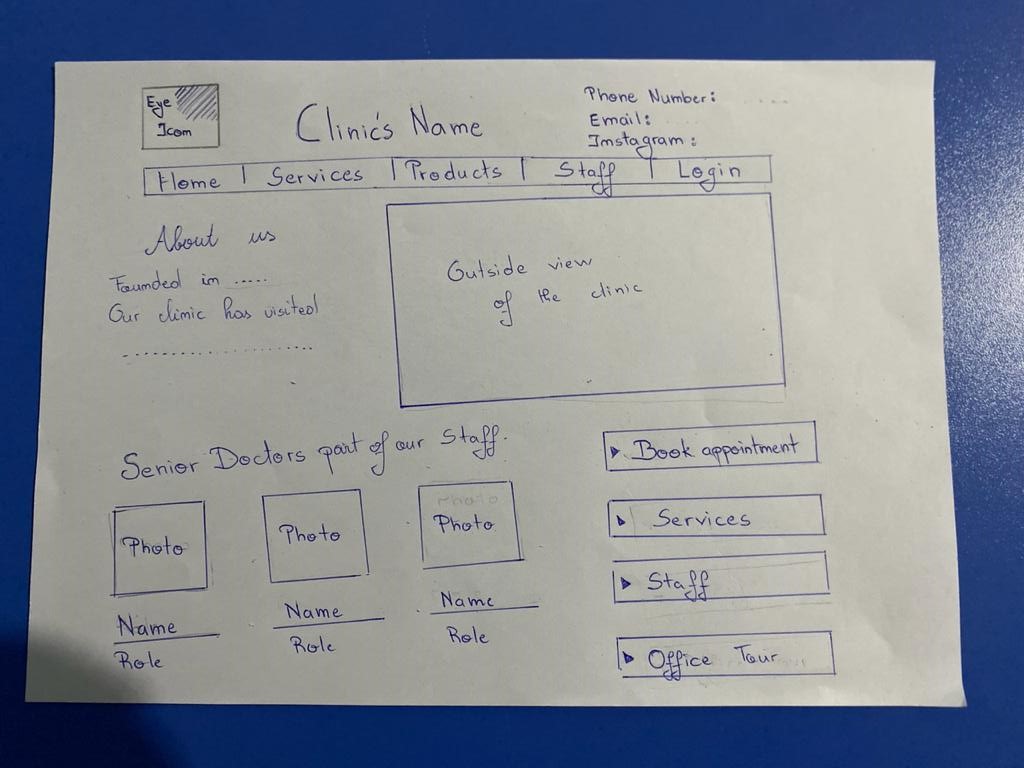 Eye
Icom
Clinic's Name
Phone Number: ....
Email:
Imstagram:
Home | Services | Products | Staff | Login
About us
Founded in .....
Our clinic has visited
.....................
Outside view
of the clinic
Senior Doctors part of our Staff.
Photo
Photo
Photo
Photo
Name
Name
Name
Role
Role
Role
Book appointment
Services
Staff
Office Tour